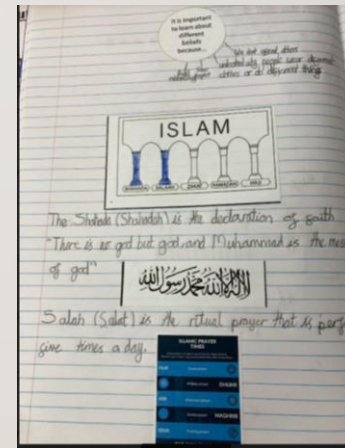 It is important
to learn about
different
beliefs
because...
We dont offend others
understand why people wear different
clothes or do different things
ISLAM
SHAHADA SALAH ZAKAT RAMADAN HAJJ
The Shahada (Shahadah) is the declaration of faith
"There is no god but god, and Muhammad is the mes
of god"
لا إله إلا الله محمد رسول الله
Salah (Salat) is the ritual prayer that is perf
five times a day.
ISLAMIC PRAYER
TIMES
FAJR
DHUHR
ASR
MAGHRIB
ISHA